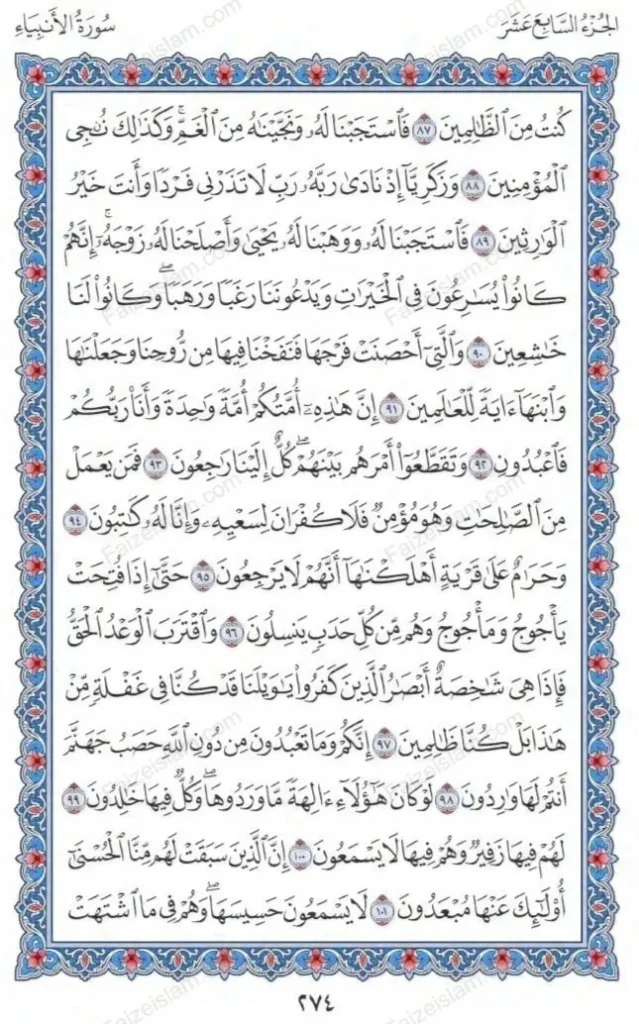 الجُزْءُ السَّابِعَ عَشَرَ
سُورَةُ الأَنبِيَاءِ
كُنتُ مِنَ ٱلظَّٰلِمِينَ ٨٧ فَٱسْتَجَبْنَا لَهُۥ وَنَجَّيْنَٰهُ مِنَ ٱلْغَمِّ ۚ وَكَذَٰلِكَ نُـۨجِى
ٱلْمُؤْمِنِينَ ٨٨ وَزَكَرِيَّآ إِذْ نَادَىٰ رَبَّهُۥ رَبِّ لَا تَذَرْنِى فَرْدًا وَأَنتَ خَيْرُ
ٱلْوَٰرِثِينَ ٨٩ فَٱسْتَجَبْنَا لَهُۥ وَوَهَبْنَا لَهُۥ يَحْيَىٰ وَأَصْلَحْنَا لَهُۥ زَوْجَهُۥٓ ۚ إِنَّهُمْ
كَانُوا۟ يُسَٰرِعُونَ فِى ٱلْخَيْرَٰتِ وَيَدْعُونَنَا رَغَبًا وَرَهَبًا ۖ وَكَانُوا۟ لَنَا
خَٰشِعِينَ ٩٠ وَٱلَّتِىٓ أَحْصَنَتْ فَرْجَهَا فَنَفَخْنَا فِيهَا مِن رُّوحِنَا وَجَعَلْنَٰهَا
وَٱبْنَهَآ ءَايَةً لِّلْعَٰلَمِينَ ٩١ إِنَّ هَٰذِهِۦٓ أُمَّتُكُمْ أُمَّةً وَٰحِدَةً وَأَنَا۠ رَبُّكُمْ
فَٱعْبُدُونِ ٩٢ وَتَقَطَّعُوٓا۟ أَمْرَهُم بَيْنَهُمْ ۖ كُلٌّ إِلَيْنَا رَٰجِعُونَ ٩٣ فَمَن يَعْمَلْ
مِنَ ٱلصَّٰلِحَٰتِ وَهُوَ مُؤْمِنٌ فَلَا كُفْرَانَ لِسَعْيِهِۦ وَإِنَّا لَهُۥ كَٰتِبُونَ ٩٤
وَحَرَٰمٌ عَلَىٰ قَرْيَةٍ أَهْلَكْنَٰهَآ أَنَّهُمْ لَا يَرْجِعُونَ ٩٥ حَتَّىٰٓ إِذَا فُتِحَتْ
يَأْجُوجُ وَمَأْجُوجُ وَهُم مِّن كُلِّ حَدَبٍ يَنسِلُونَ ٩٦ وَٱقْتَرَبَ ٱلْوَعْدُ ٱلْحَقُّ
فَإِذَا هِىَ شَٰخِصَةٌ أَبْصَٰرُ ٱلَّذِينَ كَفَرُوا۟ يَٰوَيْلَنَا قَدْ كُنَّا فِى غَفْلَةٍ مِّنْ
هَٰذَا بَلْ كُنَّا ظَٰلِمِينَ ٩٧ إِنَّكُمْ وَمَا تَعْبُدُونَ مِن دُونِ ٱللَّهِ حَصَبُ جَهَنَّمَ
أَنتُمْ لَهَا وَٰرِدُونَ ٩٨ لَوْ كَانَ هَٰٓؤُلَآءِ ءَالِهَةً مَّا وَرَدُوهَا ۖ وَكُلٌّ فِيهَا خَٰلِدُونَ ٩٩
لَهُمْ فِيهَا زَفِيرٌ وَهُمْ فِيهَا لَا يَسْمَعُونَ ١٠٠ إِنَّ ٱلَّذِينَ سَبَقَتْ لَهُم مِّنَّا ٱلْحُسْنَىٰٓ
أُو۟لَٰٓئِكَ عَنْهَا مُبْعَدُونَ ١٠١ لَا يَسْمَعُونَ حَسِيسَهَا ۖ وَهُمْ فِى مَا ٱشْتَهَتْ
٢٧٤
Faizeislam.com